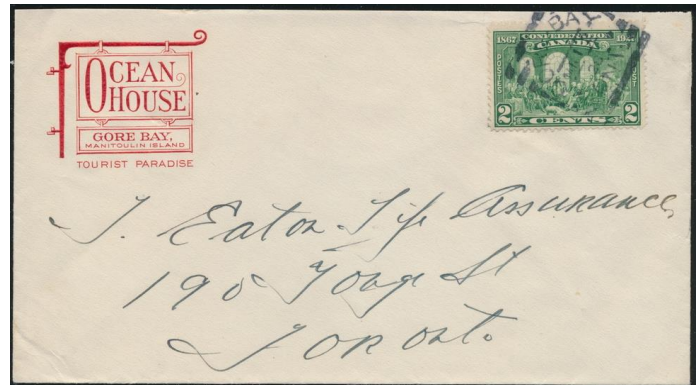 OCEAN
HOUSE
GORE BAY,
MANITOULIN ISLAND
TOURIST PARADISE
BAY
CONFEDERATION
1867 CANADA
POSTES POST
2 CENTS 2
T. Eaton Life Assurance
190 Yonge St
Toronto.